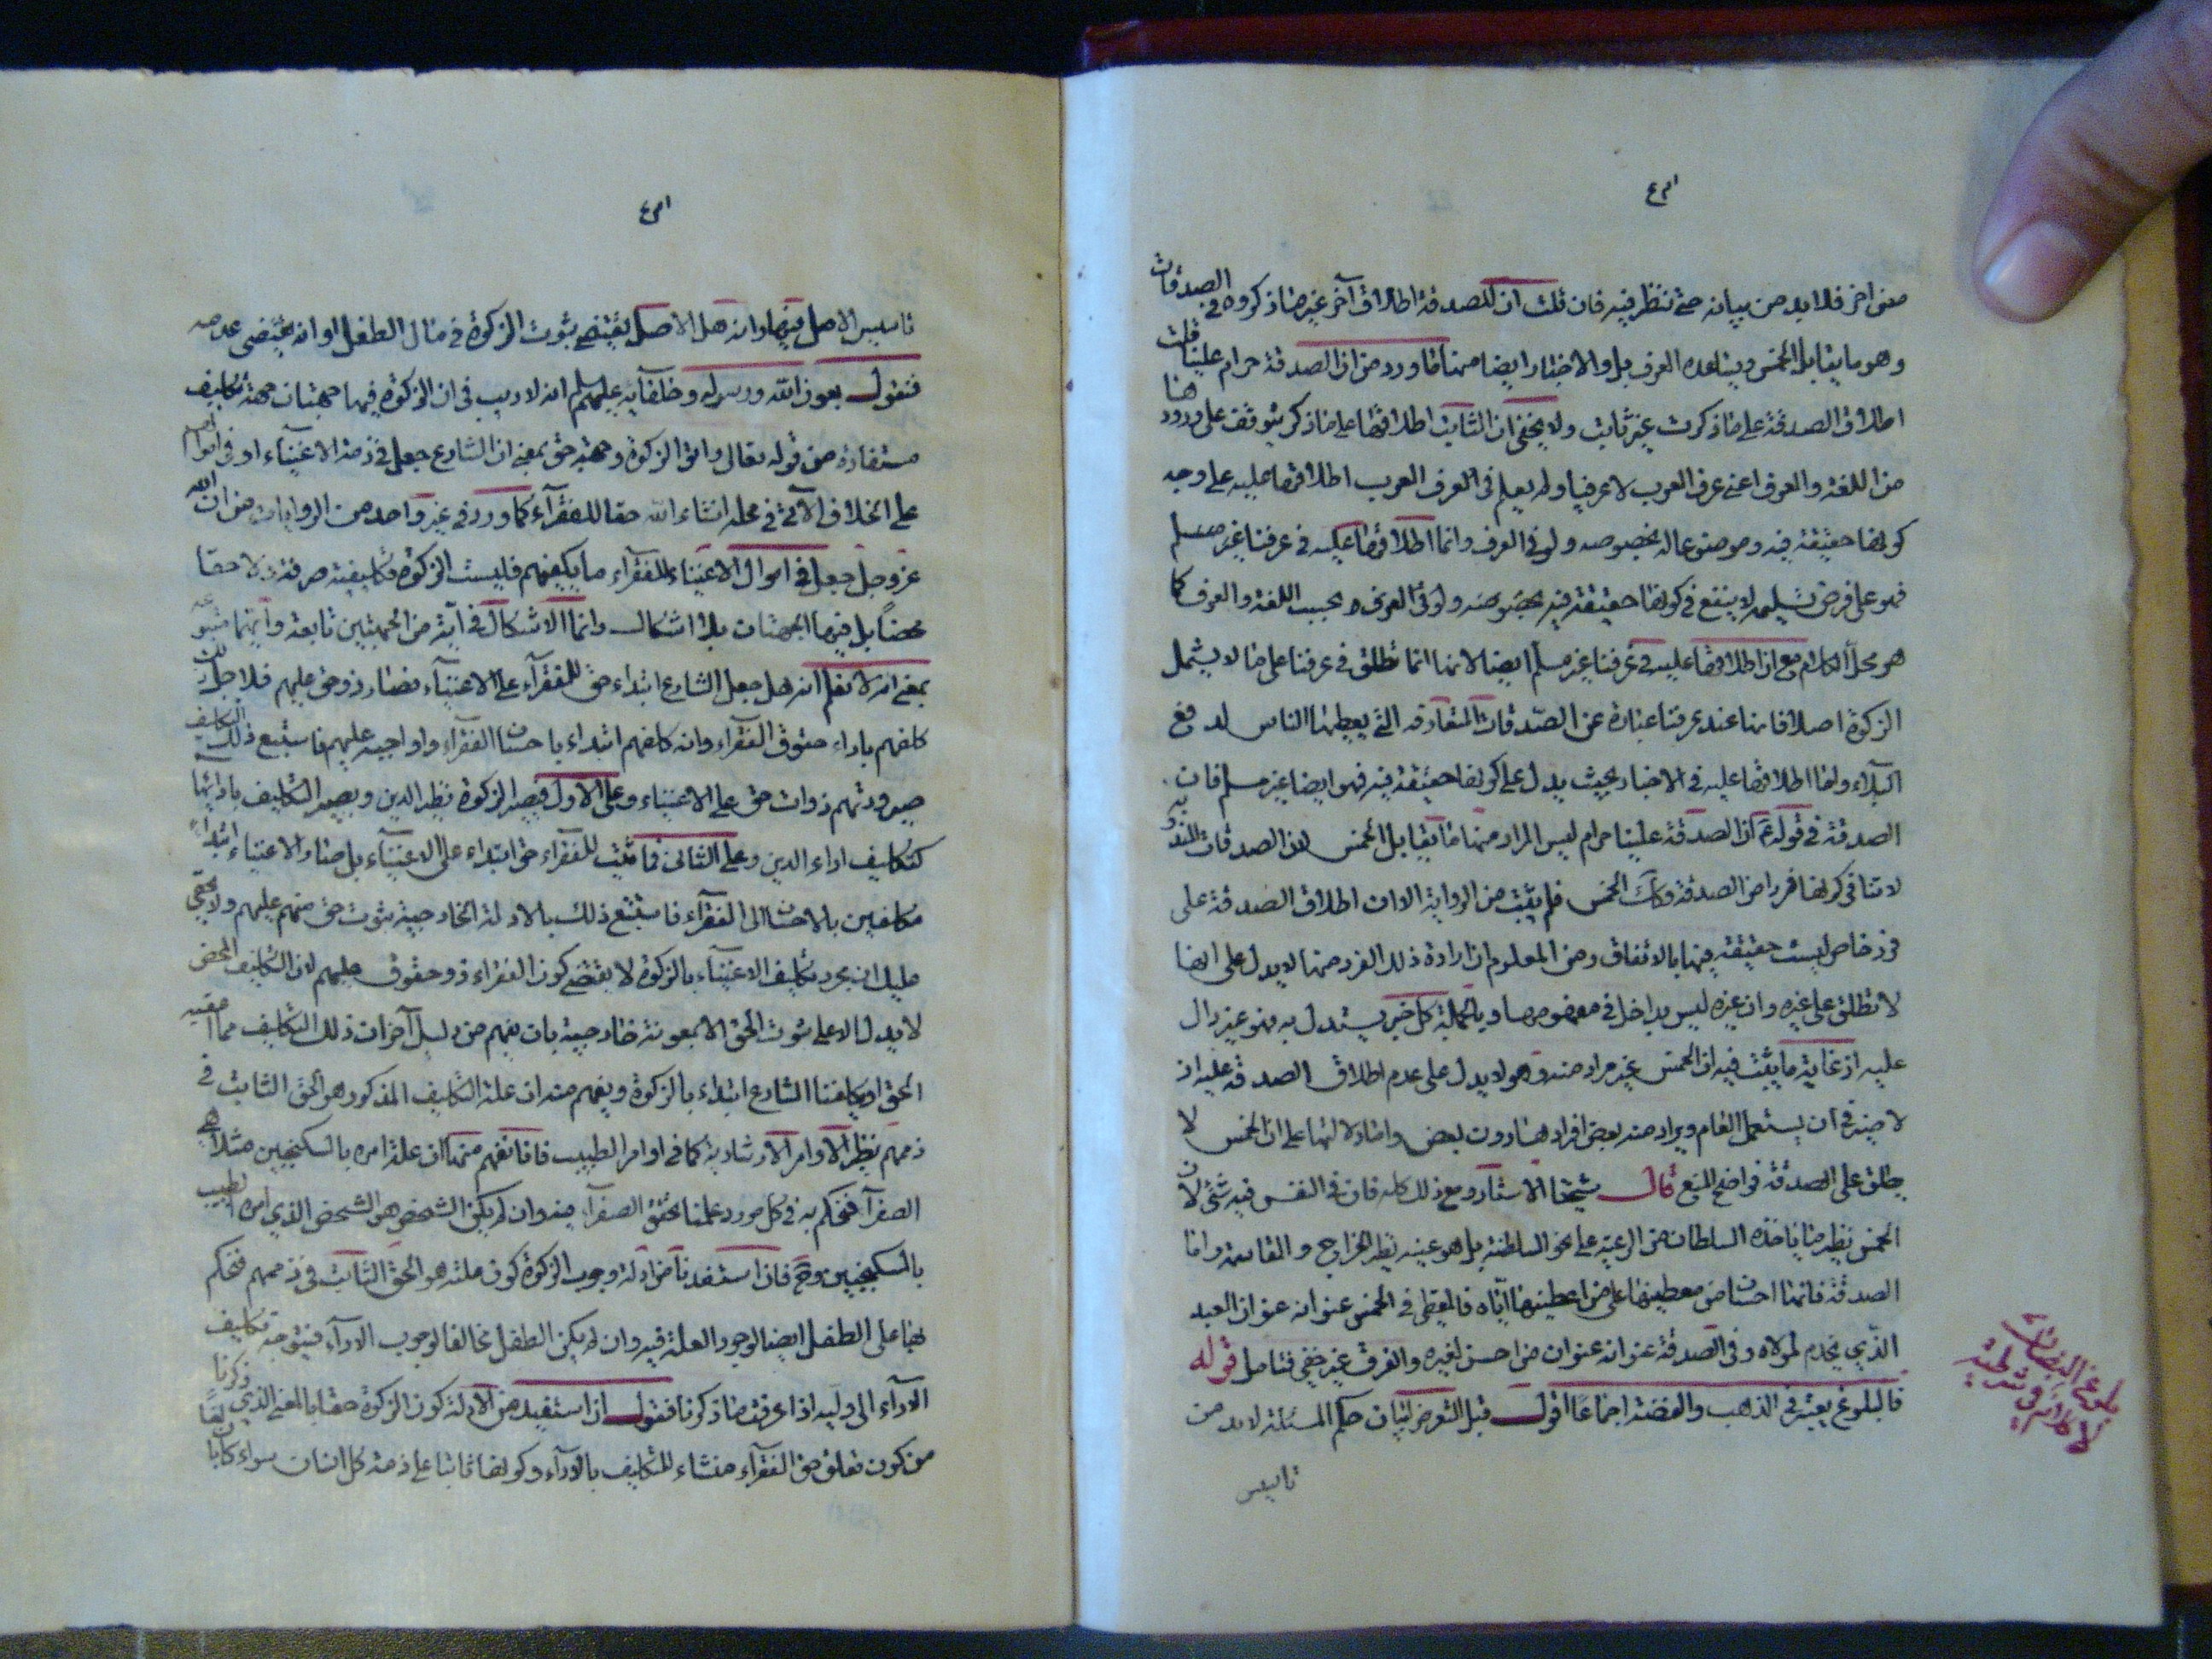 معنى اخر فلا بد من بيانه حتى ننظر فيه فان قلت ان للصدقة اطلاق آخر غير ما ذكروه في الصدقات
وهو ما يقابل الخمس ويساعده العرف بل والاخبار ايضا منها ما ورد من ان الصدقة حرام علينا قلت
اطلاق الصدقة على ما ذكرت غير ثابت ولا يخفى ان الثابت اطلاقها على ما ذكر يتوقف على ورود هنا
من اللغة والعرف اعنى عرف العرب لا عرفنا ولم يعلم في العرف العرب اطلاقها عليه على وجه
كونها حقيقة فيه وموضوعا له بخصوصه ولو في العرف وانما اطلاقها عليه في عرفنا غير مسلم
فهو على فرض تسليمه لا ينفع في كونها حقيقة فيه بخصوصه ولو في العرف بحسب اللغة والعرف كما
هو محل الكلام مع ان اطلاقها عليه في عرفنا غير مسلم ايضا لانها انما تطلق في عرفنا على ما لا يشمل
الزكوة اصلا فانها عند عرفنا عبارة عن الصدقات المتعارفه التي يعطيها الناس لدفع
البلاء واما اطلاقها عليه في الاخبار بحيث يدل على كونها حقيقة فيه فهو ايضا غير مسلم فان
الصدقة في قوله ع ان الصدقة علينا حرام ليس المراد منها ما يقابل الخمس لان الصدقات المندوبه
لا تنافي كونها فردا من الصدقة وكك الخمس فلم يثبت من الرواية الا ان اطلاق الصدقة على
فرد خاص ليست حقيقة فيها بالاتفاق ومن المعلوم ان ارادة ذلك الفرد منها لا يدل على انها
لا تطلق على غيره وان غيره ليس بداخل في مفهومها وبالجملة كل خبر يستدل به فهو غير دال
عليه اذ غاية ما يثبت فيه ان الخمس غير مراد منه وهو لا يدل على عدم اطلاق الصدقة عليه اذ
لا ضير في ان يستعمل العام ويراد منه بعض افراده دون بعض واما دلالتها على ان الخمس لا
يطلق على الصدقة فواضح المنع قال شيخنا الاستاد ومع ذلك كله فان في النفس فيه شئ لان
الخمس نظير ما ياخذه السلطان من الرعية على نحو السلطنة بل هو عينه نظير الخراج والمقاسمة واما
الصدقة فانما احسانا من معطيها على من اعطيها اياه فالمعطى في الخمس عنوانه عنوان العبد
الذي يخدم لمولاه وفي الصدقة عنوانه عنوان من احسن لغيره والفرق غير خفي فتامل قوله
فالبلوغ يعتبر في الذهب والفضة اجماعا اقول قبل التعرض لبيان حكم المسئلة لا بد من
تاسيس
تاسيس الاصل فيها وانه هل الاصل يقتضى ثبوت الزكوة في مال الطفل او انه يقتضى عدمه
فنقول بعون الله ورسوله وخلفآئه عليهم السلم انه لا ريب في ان الزكوة فيها جهتان جهة تكليف
مستفادة من قوله تعالى واتوا الزكوة وجهة حق بمعنى ان الشارع جعل في ذمة الاغنيآء او في اموالهم
على الخلاف الآتى في محله انشاء الله حقا للفقرآء كما ورد في غير واحد من الروايات من ان الله
عز وجل جعل في اموال الاغنياء للفقرآء ما يكفيهم فليست الزكوة تكليفية صرفة ولا حقا
محضا بل فيها الجهتان بلا اشكال وانما الاشكال في آية من الجهتين تابعة وآيتهما متبوعه
بمعنى انه لا نعلم انه هل جعل الشارع ابتداء حق للفقرآء على الاغنيآء فصار ذو حق عليهم فلاجل ذلك
كلفهم باداء حقوق الفقرآء وانه كلفهم ابتداء باحسان الفقرآء واواجبه عليهم فاستتبع ذلك التكليف
صيرورتهم ذوات حق على الاغنياء وعلى الاول فيصير الزكوة نظير الدين ويصير التكليف بادائها
كتكليف اداء الدين وعلى الثانى فما ثبت للفقرآء حق ابتداء على الاغنيآء بل صار الاغنياء ابتداء
مكلفين بالاحسان الى الفقرآء فاستتبع ذلك بالادلة الخارجية ثبوت حق منهم عليهم ولا يخفى
عليك ان مجرد تكليف الاغنيآء بالزكوة لا يقتضى كون الفقراء ذو حقوق عليهم لان التكليف المحض
لا يدل الا على ثبوت الحق الا بمعونة خارجية بان يفهم من دليل آخر ان ذلك التكليف مما اعقبه
الحق او يكلفنا الشارع ابتداء بالزكوة ويفهم منه ان علة التكليف المذكور هو الحق الثابت في
ذممهم نظير الاوامر الارشادية كما في اوامر الطبيب فانا نفهم منها ان علة امره بالسكنجبين مثلا هي
الصفرآء فنحكم به في كل مورد علمنا بتحقق الصفرآء فيه وان لم يكن الشخص هو الشخص الذي امره الطبيب
بالسكنجبين وح فان استفدنا من ادلة وجوب الزكوة كون علته هو الحق الثابت في ذممهم فنحكم
بها على الطفل ايضا لوجود العلة فيه وان لم يكن الطفل مخالفا لوجوب الادآء فيتوجه تكليف
الادآء الى وليه اذا عرفت ما ذكرنا فنقول ان استفيد من الادلة كون الزكوة حقا بالمعنى الذي ذكرنا
من كون تعلق حق الفقرآء منشاء للتكليف بالادآء وكونها ثابتا على ذمة كل انسان سواء كان بالغا